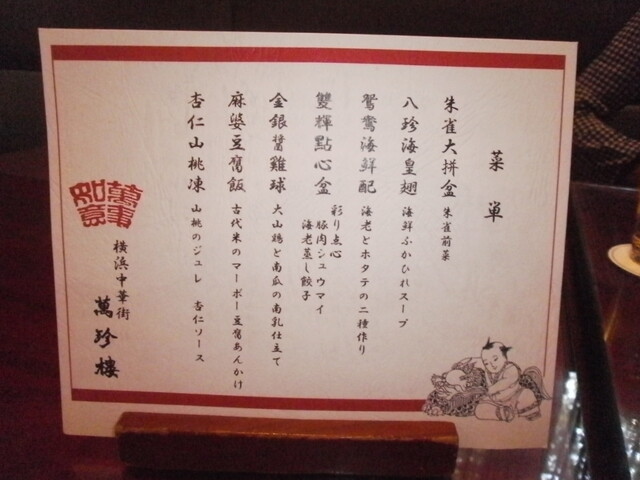 菜単
朱雀大拼盆 朱雀前菜
八珍海皇翅 海鮮ふかひれスープ
鴛鴦海鮮配 海老とホタテの二種作り
雙輝點心盒 彩り点心
豚肉シュウマイ
海老蒸し餃子
金銀醤雞球 大山鶏と南瓜の南乳仕立て
麻婆豆腐飯 古代米のマーボー豆腐あんかけ
杏仁山桃凍 山桃のジュレ 杏仁ソース
萬事如意
横浜中華街
萬珍樓